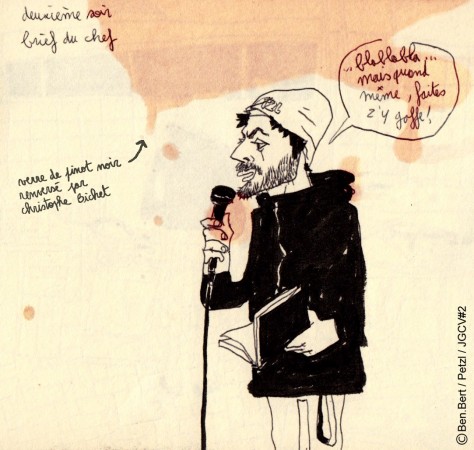 deuxième soir
brief du chef
...blablabla...
mais quand
même, faites
z'y gaffe!
verre de pinot noir
renversé par
christophe Bichet
© Ben.Bert / Petzl / JGCV#2